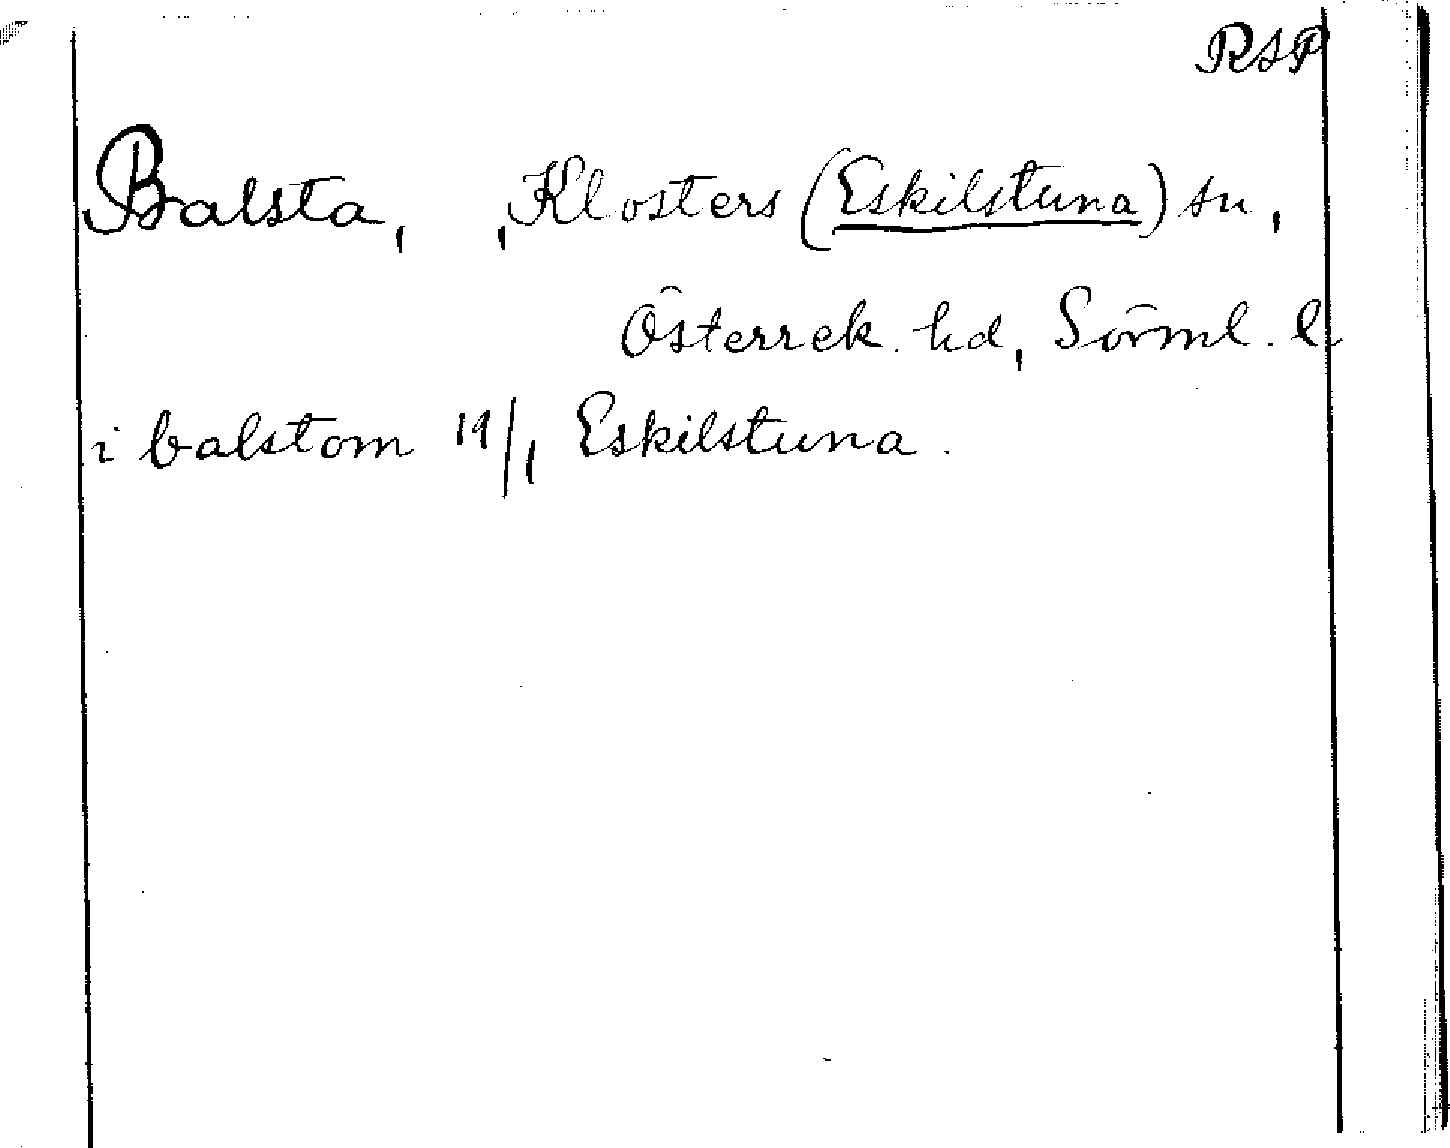 RSP
Balsta, ,Klosters (Eskilstuna) sn,
Österrek. hd, Sörml. l
i balstom 19/1 Eskilstuna.